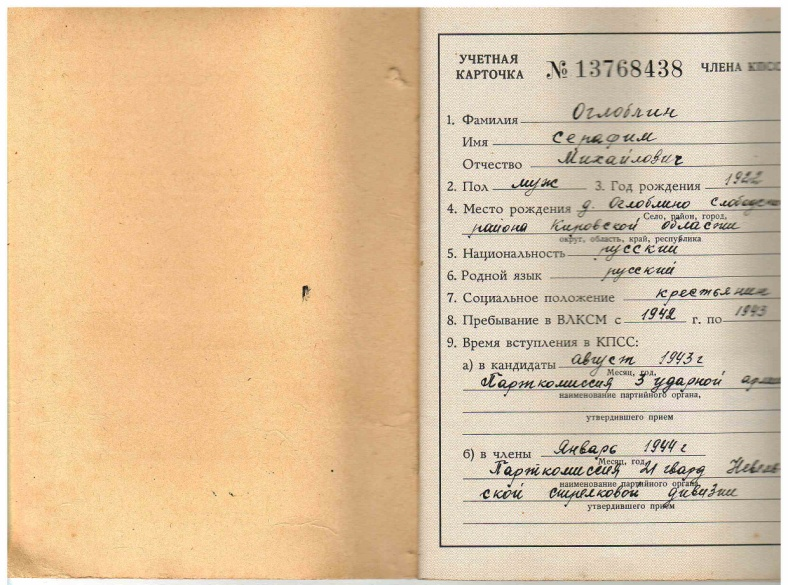 УЧЕТНАЯ
КАРТОЧКА № 13768438 ЧЛЕНА КПСС
1. Фамилия Оглоблин
Имя Серафим
Отчество Михайлович
2. Пол муж 3. Год рождения 1922
4. Место рождения д. Оглоблино Слободско
Село, район, город,
района Кировской области
округ, область, край, республика
5. Национальность русский
6. Родной язык русский
7. Социальное положение крестьянин
8. Пребывание в ВЛКСМ с 1942 г. по 1943
9. Время вступления в КПСС:
а) в кандидаты август 1943 г
Месяц, год,
Парткомиссия 3 ударной арми
наименование партийного органа,
утвердившего прием
б) в члены Январь 1944 г
Месяц, год
Парткомиссия 21 гвард Невель
наименование партийного органа,
ской стрелковой дивизии
утвердившего прием